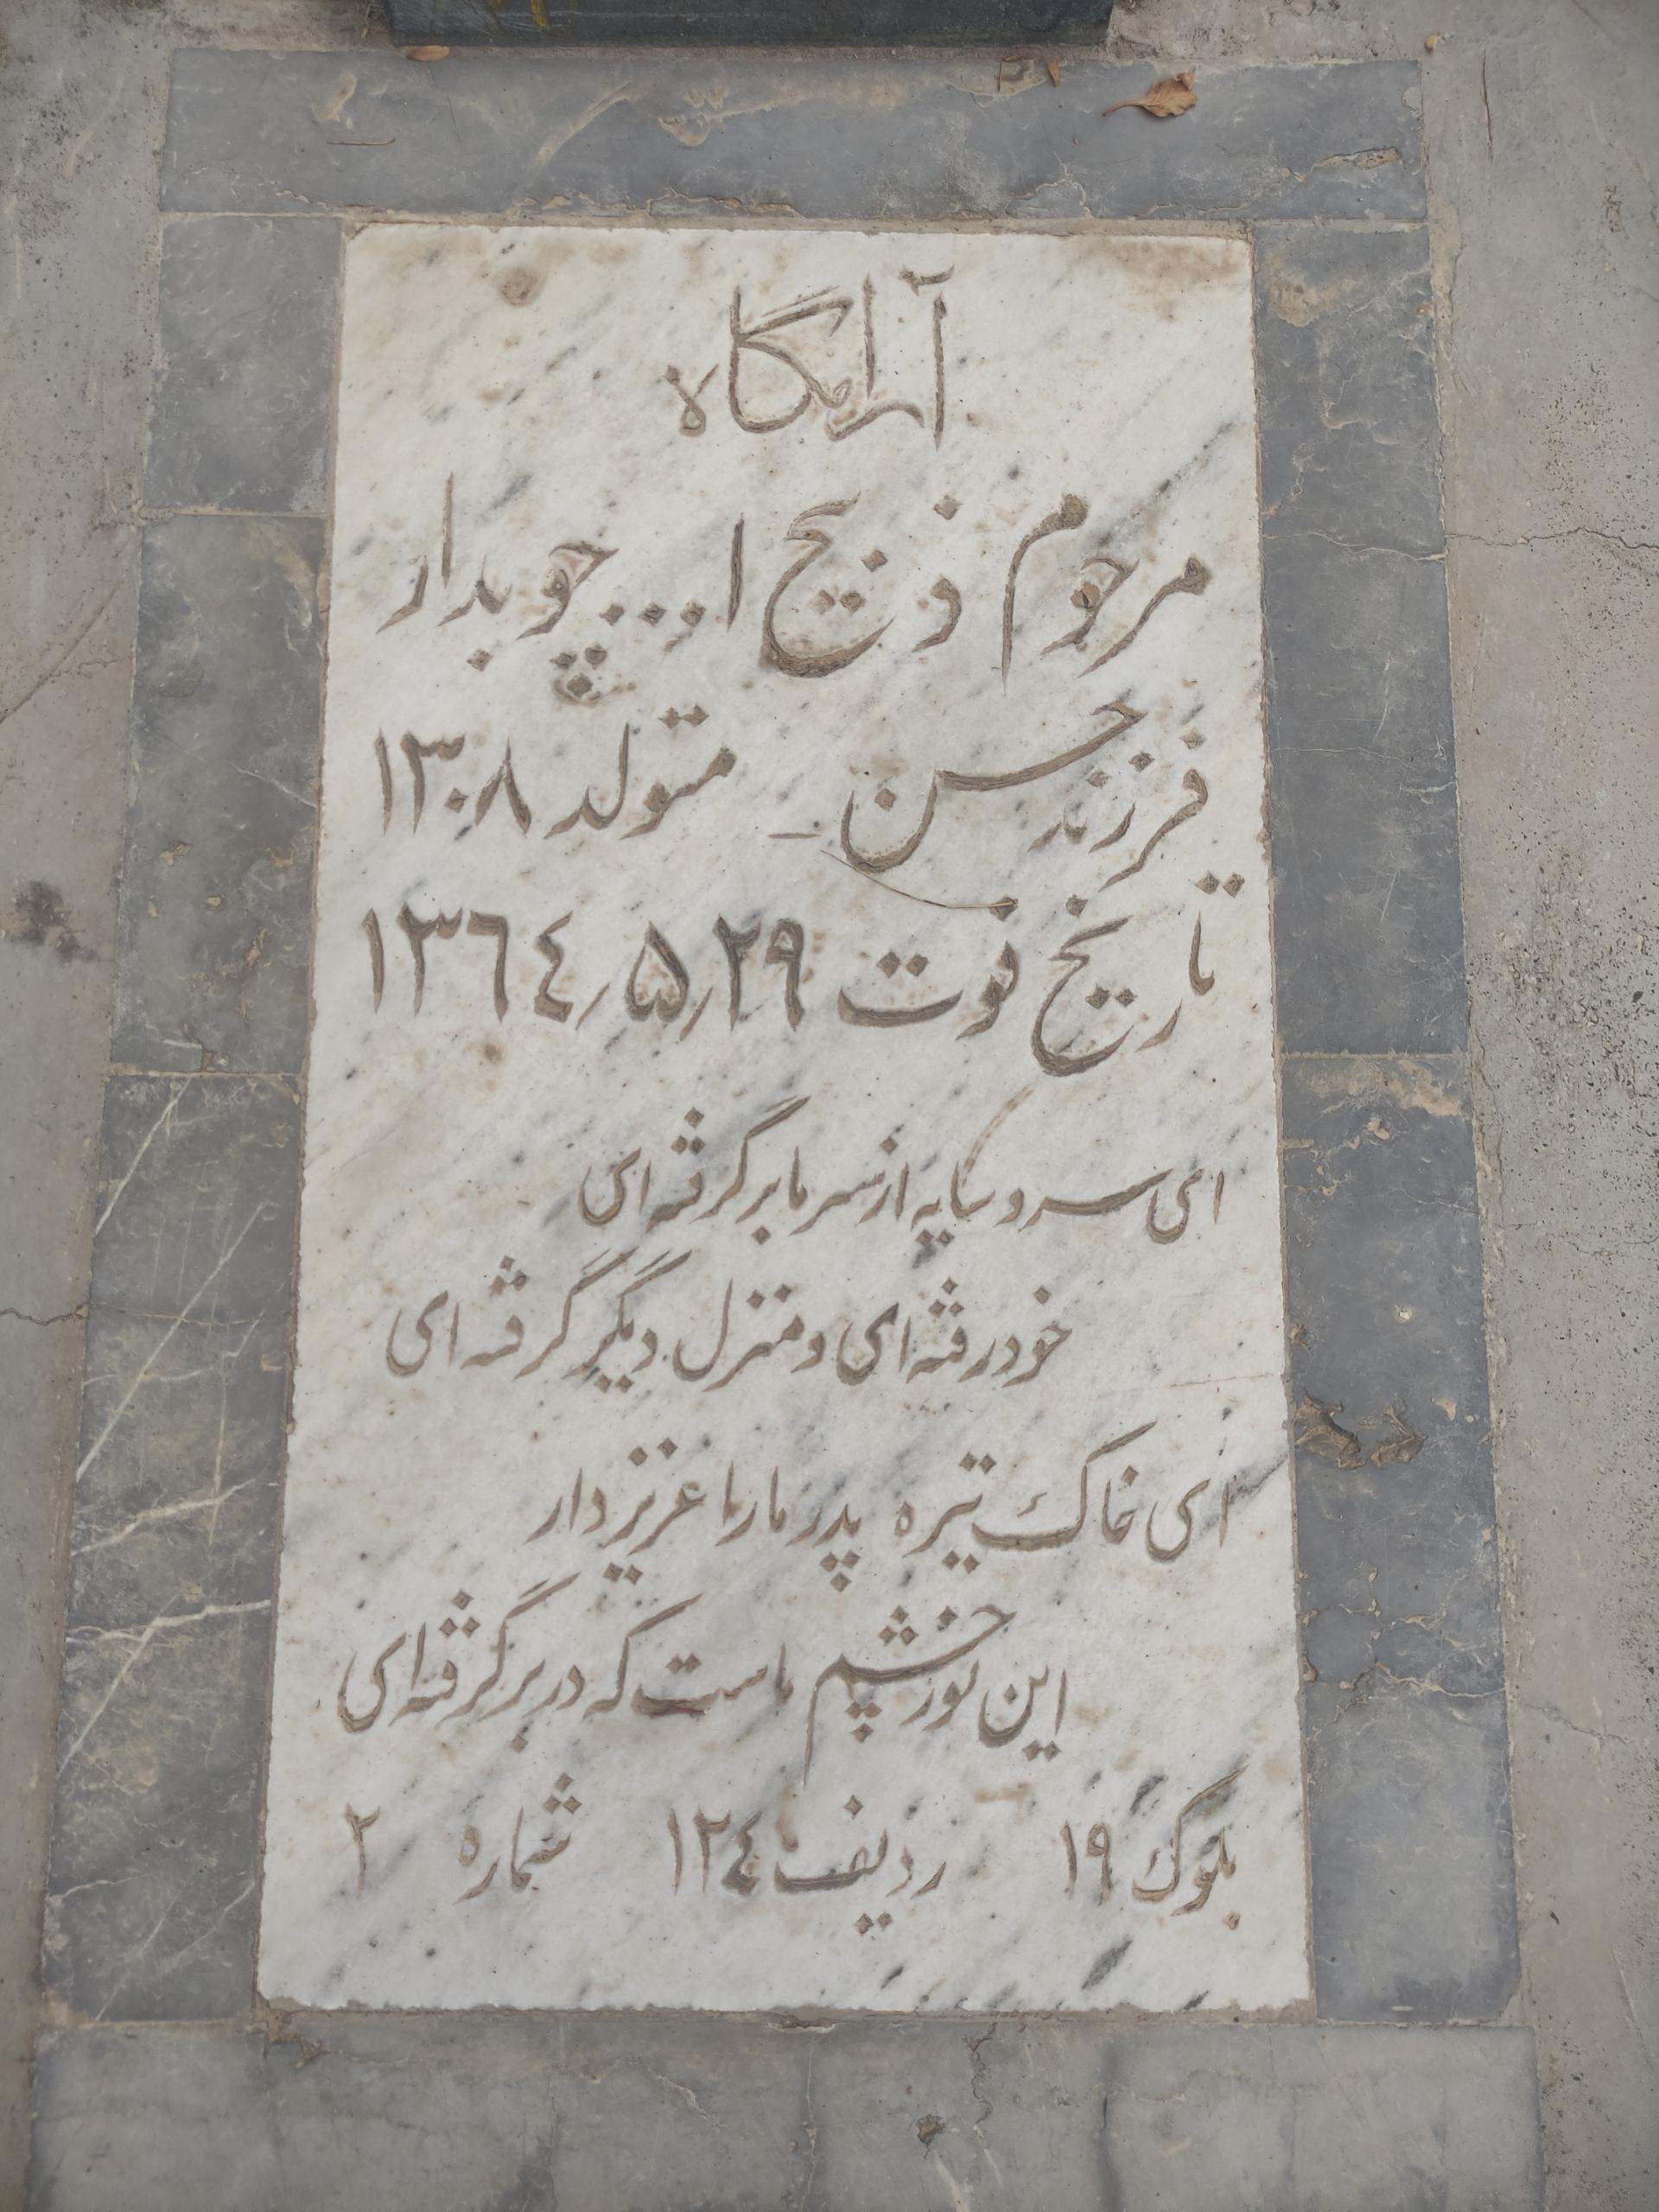 آرامگاه
مرحوم ذبیح ا... چوبدار
فرزند حسن - متولد ۱۳۰۸
تاریخ فوت ۲۹/۵/۱۳۶٤
ای سرو سایه از سر ما برگرفته ای
خود رفته ای و منزل دیگر گرفته ای
ای خاک تیره پدر ما را عزیز دار
این نور چشم ماست که در بر گرفته ای
بلوک ۱۹ ردیف ۱۲٤ شماره ۲